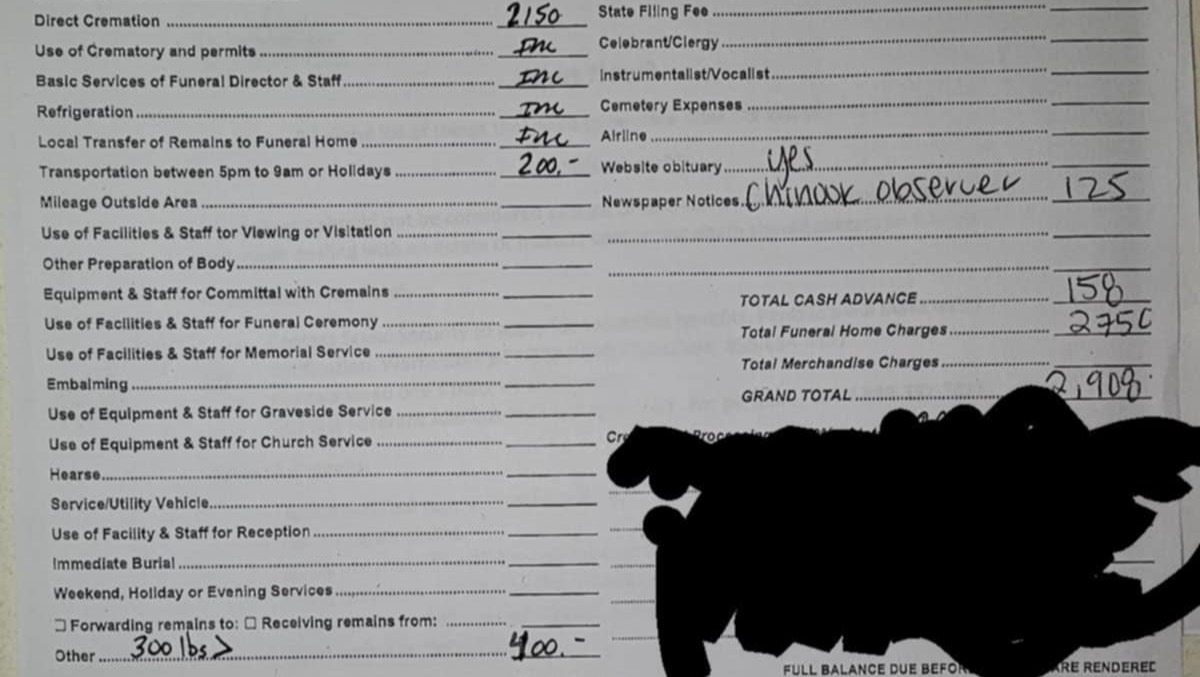 Direct Cremation ........ 2150
Use of Crematory and permits ........ Inc
Basic Services of Funeral Director & Staff ........ Inc
Refrigeration ........ Inc
Local Transfer of Remains to Funeral Home ........ Inc
Transportation between 5pm to 9am or Holidays ........ 200.-
Mileage Outside Area ........
Use of Facilities & Staff for Viewing or Visitation ........
Other Preparation of Body ........
Equipment & Staff for Committal with Cremains ........
Use of Facilities & Staff for Funeral Ceremony ........
Use of Facilities & Staff for Memorial Service ........
Embalming ........
Use of Equipment & Staff for Graveside Service ........
Use of Equipment & Staff for Church Service ........
Hearse ........
Service/Utility Vehicle ........
Use of Facility & Staff for Reception ........
Immediate Burial ........
Weekend, Holiday or Evening Services ........
☐ Forwarding remains to: ☐ Receiving remains from: ........
Other ........ 300 lbs> ........ 400.-
State Filing Fee ........
Celebrant/Clergy ........
Instrumentalist/Vocalist ........
Cemetery Expenses ........
Airline ........
Website obituary ........ yes
Newspaper Notices. Chinook observer 125
TOTAL CASH ADVANCE ........ 158
Total Funeral Home Charges ........ 2750
Total Merchandise Charges ........
GRAND TOTAL ........ 2,908.
FULL BALANCE DUE BEFOR ARE RENDERED